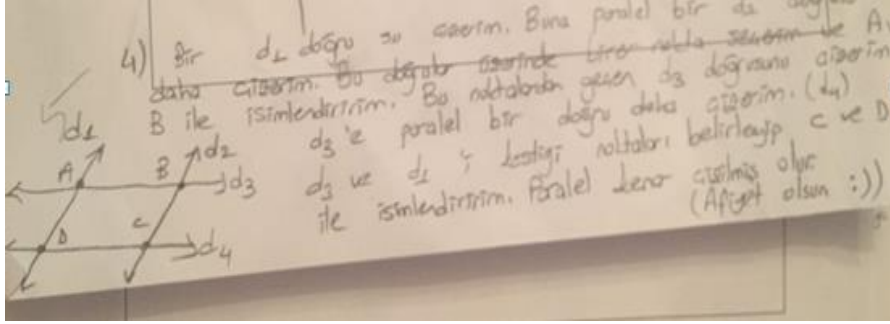 4) Bir d₁ doğrusu çizerim. Buna paralel bir d₂
daha çizerim. Bu doğrular üzerinde birer nokta ve A
B ile isimlendiririm. Bu noktalardan geçen d₃ doğrusunu çizerim
d₃'e paralel bir doğru daha çizerim. (d₄)
d₃ ve d₁ kestiği noktaları belirleyip C ve D
ile isimlendiririm. Paralel kenar çizilmiş olur
(Afiyet olsun :))
d₁
A B d₂
d₃
D C
d₄